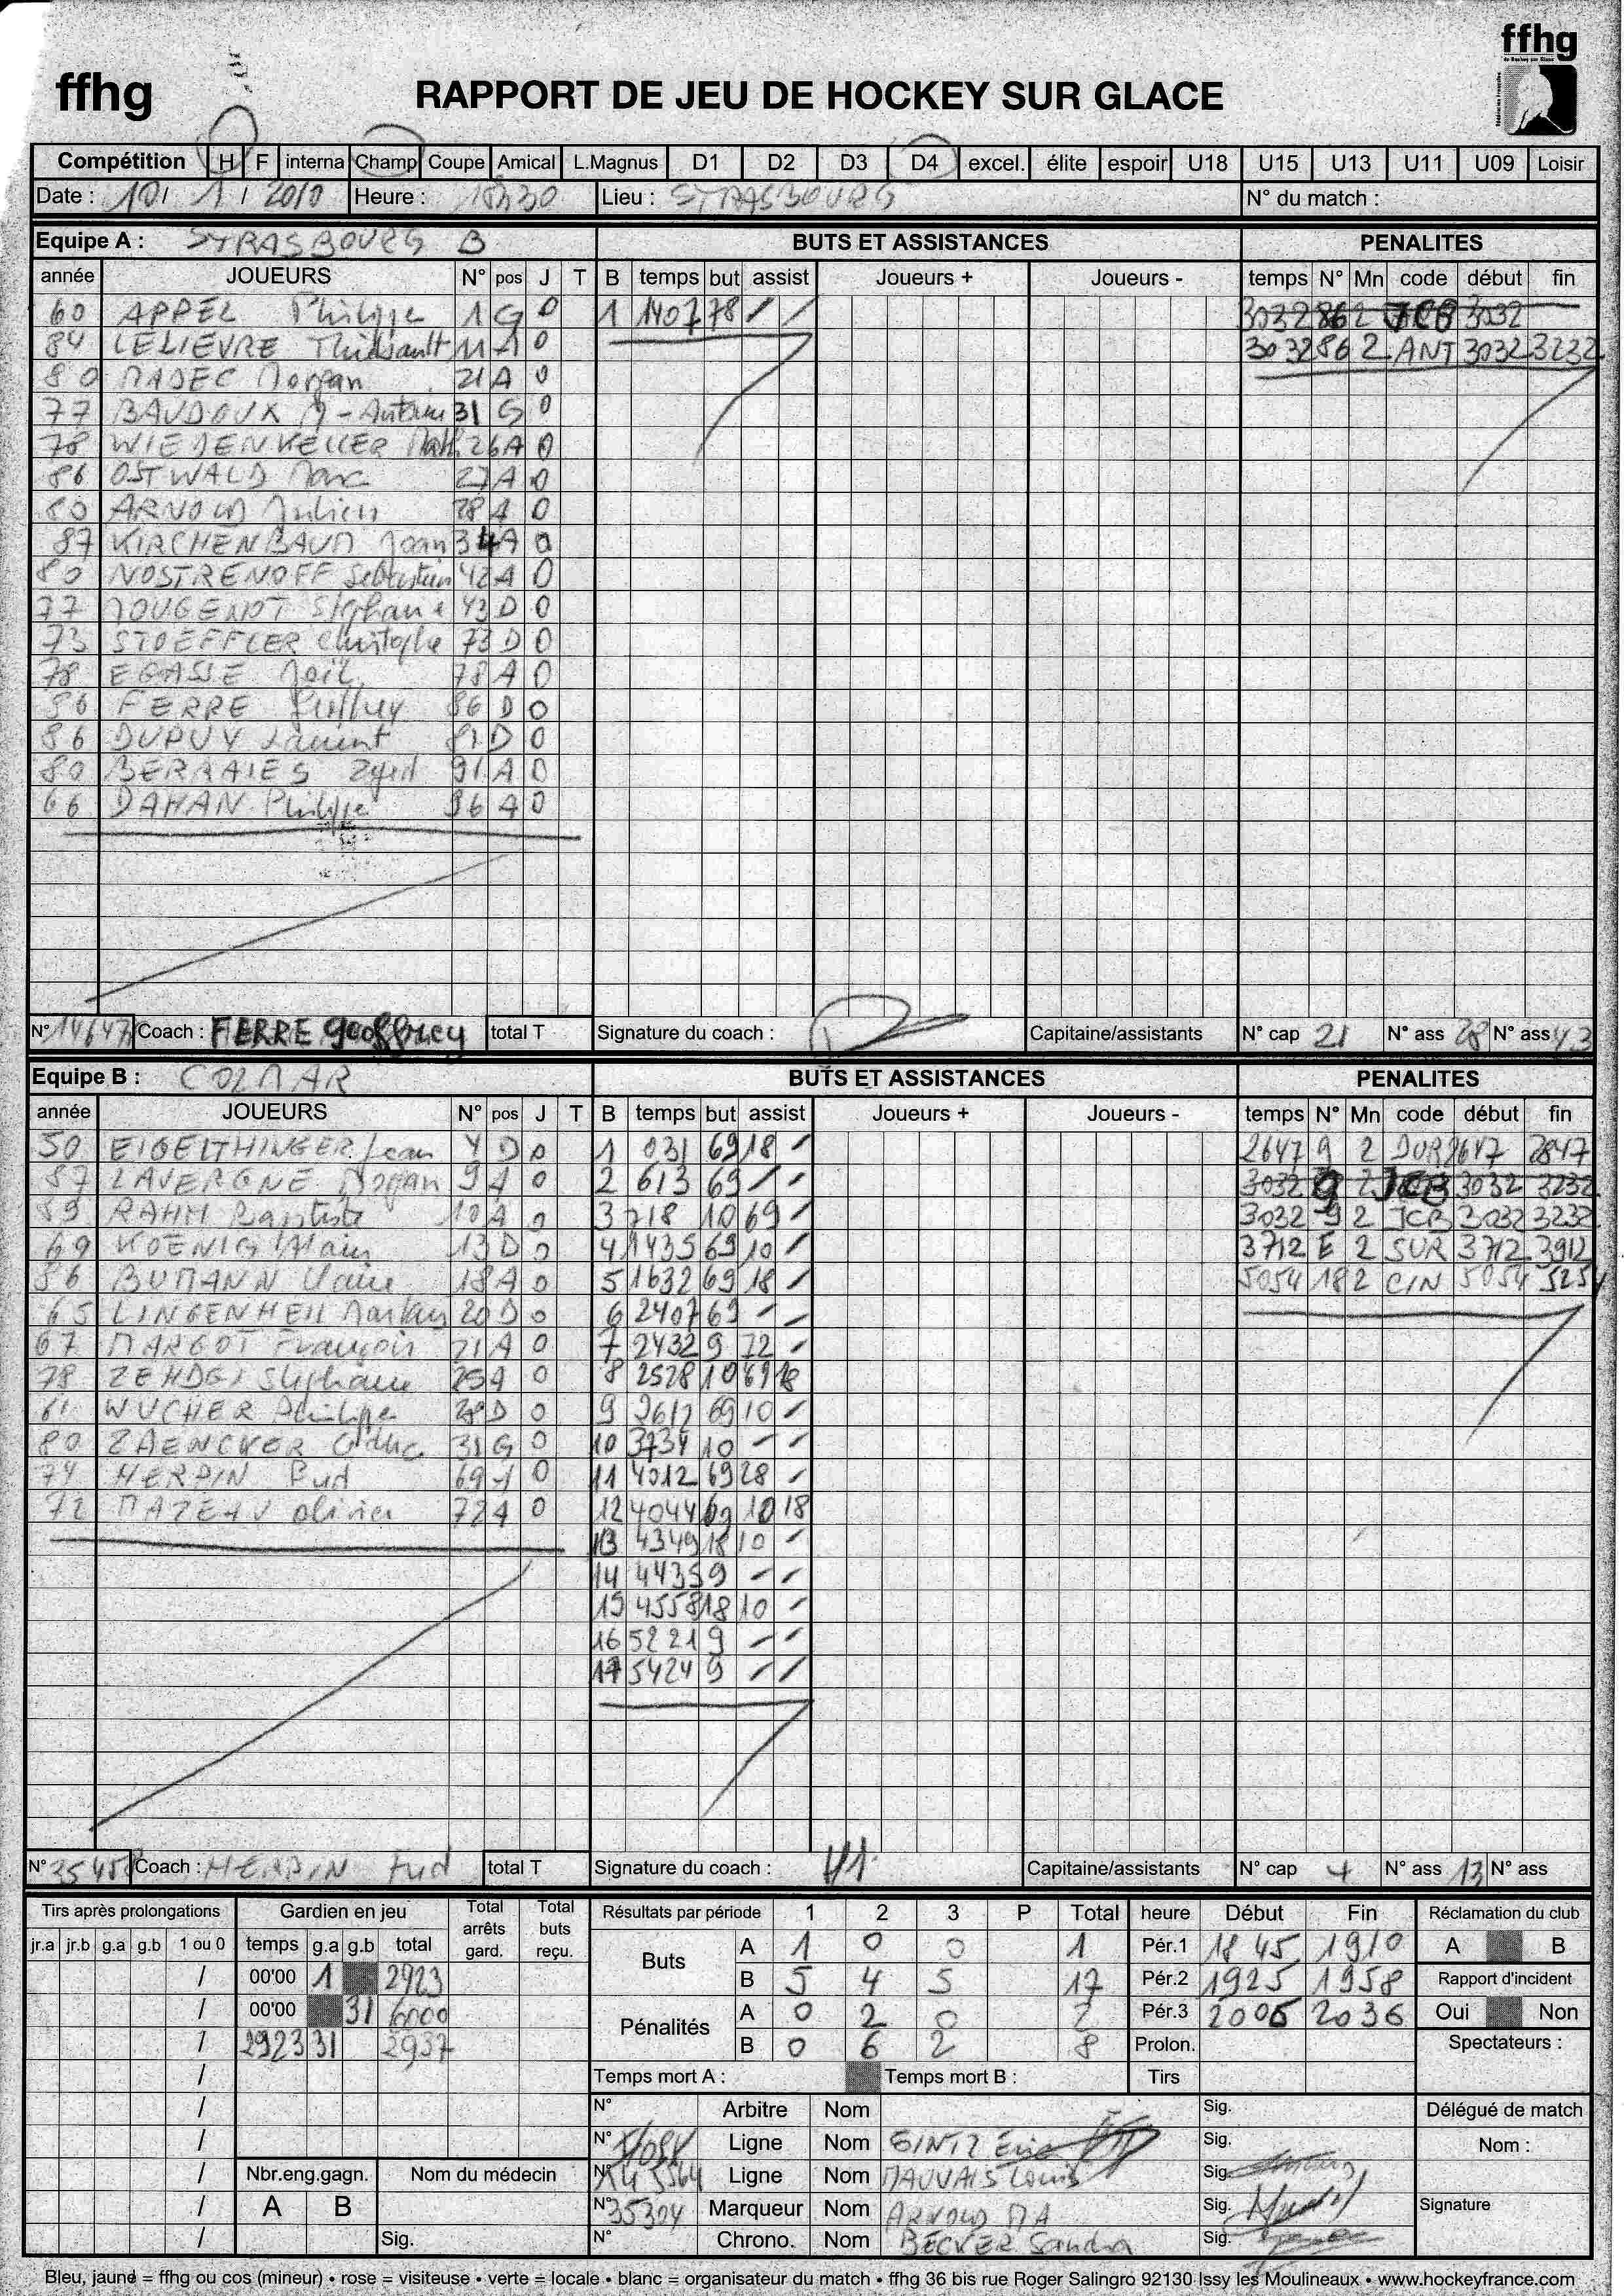 ffhg
ffhg
RAPPORT DE JEU DE HOCKEY SUR GLACE
Compétition H F interna Champ Coupe Amical L.Magnus D1 D2 D3 D4 excel. élite espoir U18 U15 U13 U11 U09 Loisir
Date : 10 / 1 / 2010 Heure : 18h30 Lieu : STRASBOURG N° du match :
Equipe A : STRASBOURG B BUTS ET ASSISTANCES PENALITES
année JOUEURS N° pos J T B temps but assist Joueurs + Joueurs - temps N° Mn code début fin
60 APPEL Philippe 1 G 0 1 1407 78 / / 3032 86 2 JCB 3032
84 LELIEVRE Thiébault 11 A 0 3032 86 2 ANT 3032 3232
80 MADEC Morgan 21 A 0
77 BAUDOUX M-Antoine 31 G 0
78 WIEDENKELLER Math. 26 A 0
86 OSTWALD Marc 27 A 0
80 ARNOLD Julien 28 A 0
87 KIRCHENBAUM Joan 34 A 0
80 NOSTRENOFF Sébastien 42 A 0
77 MOUGENOT Stéphane 43 D 0
73 STOEFFLER Christophe 73 D 0
78 EGASSE Joël 78 A 0
86 FERRE 86 D 0
86 DUPUY Laurent D 0
80 BERRAIES Zyed 91 A 0
66 DAHAN Philippe 96 A 0
N° 14647 Coach : FERRE Geoffrey total T Signature du coach : Capitaine/assistants N° cap 21 N° ass 28 N° ass 43
Equipe B : COLMAR BUTS ET ASSISTANCES PENALITES
année JOUEURS N° pos J T B temps but assist Joueurs + Joueurs - temps N° Mn code début fin
50 EIGELTHINGER Jean 4 D 0 1 031 69 18 / 2647 9 2 DUR 2647 2847
87 LAVERGNE Morgan 9 A 0 2 613 69 / / 3032 9 2 JCB 3032 3232
89 RAHM Baptiste 10 A 0 3 718 10 69 / 3032 9 2 JCB 3032 3232
69 KOENIG Alain 13 D 0 4 1435 69 10 / 3712 E 2 SUR 3712 3912
86 BUMANN Claire 18 A 0 5 1632 69 18 / 5054 18 2 CIN 5054 5254
65 LINGENHEIL Markus 20 D 0 6 2407 69 / /
67 MARGOT François 21 A 0 7 2432 9 72 /
78 Stéphane 25 A 0 8 2528 10 69 18
61 WUCHER Philippe 28 D 0 9 2612 69 10 /
80 ZAENCKER Cédric 31 G 0 10 3734 10 / /
74 HERPIN Fud 69 A 0 11 4012 69 28 /
72 MAZEAU Olivier 72 A 0 12 4044 69 10 18
13 4349 18 10 /
14 4435 9 / /
15 4558 18 10 /
16 5221 9 / /
17 5424 9 / /
N° 35458 Coach : HERPIN Fud total T Signature du coach : Capitaine/assistants N° cap 4 N° ass 13 N° ass
Tirs après prolongations Gardien en jeu Total arrêts gard. Total buts reçu. Résultats par période 1 2 3 P Total heure Début Fin Réclamation du club
jr.a jr.b g.a g.b 1 ou 0 temps g.a g.b total Buts A 1 0 0 1 Pér.1 1845 1910 A B
/ 00'00 1 2923 B 5 4 5 17 Pér.2 1925 1958 Rapport d'incident
/ 00'00 31 6000 Pénalités A 0 2 0 2 Pér.3 2006 2036 Oui Non
/ 2923 31 2937 B 0 6 2 8 Prolon. Spectateurs :
/ Temps mort A : Temps mort B : Tirs
/ N° Arbitre Nom Sig. Délégué de match
/ N° Ligne Nom GINTZ Eric Sig. Nom :
/ Nbr.eng.gagn. Nom du médecin N° Ligne Nom MAUVAIS Louis Sig.
/ A B N° 35304 Marqueur Nom ARNOLD MA Sig. Signature
/ Sig. N° Chrono. Nom BECKER Sandra Sig.
Bleu, jaune = ffhg ou cos (mineur) • rose = visiteuse • verte = locale • blanc = organisateur du match • ffhg 36 bis rue Roger Salingro 92130 Issy les Moulineaux • www.hockeyfrance.com